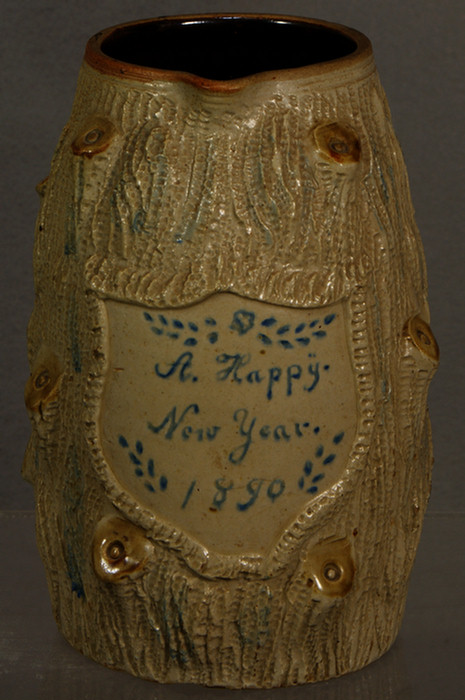 A. Happÿ.
New Year.
1890